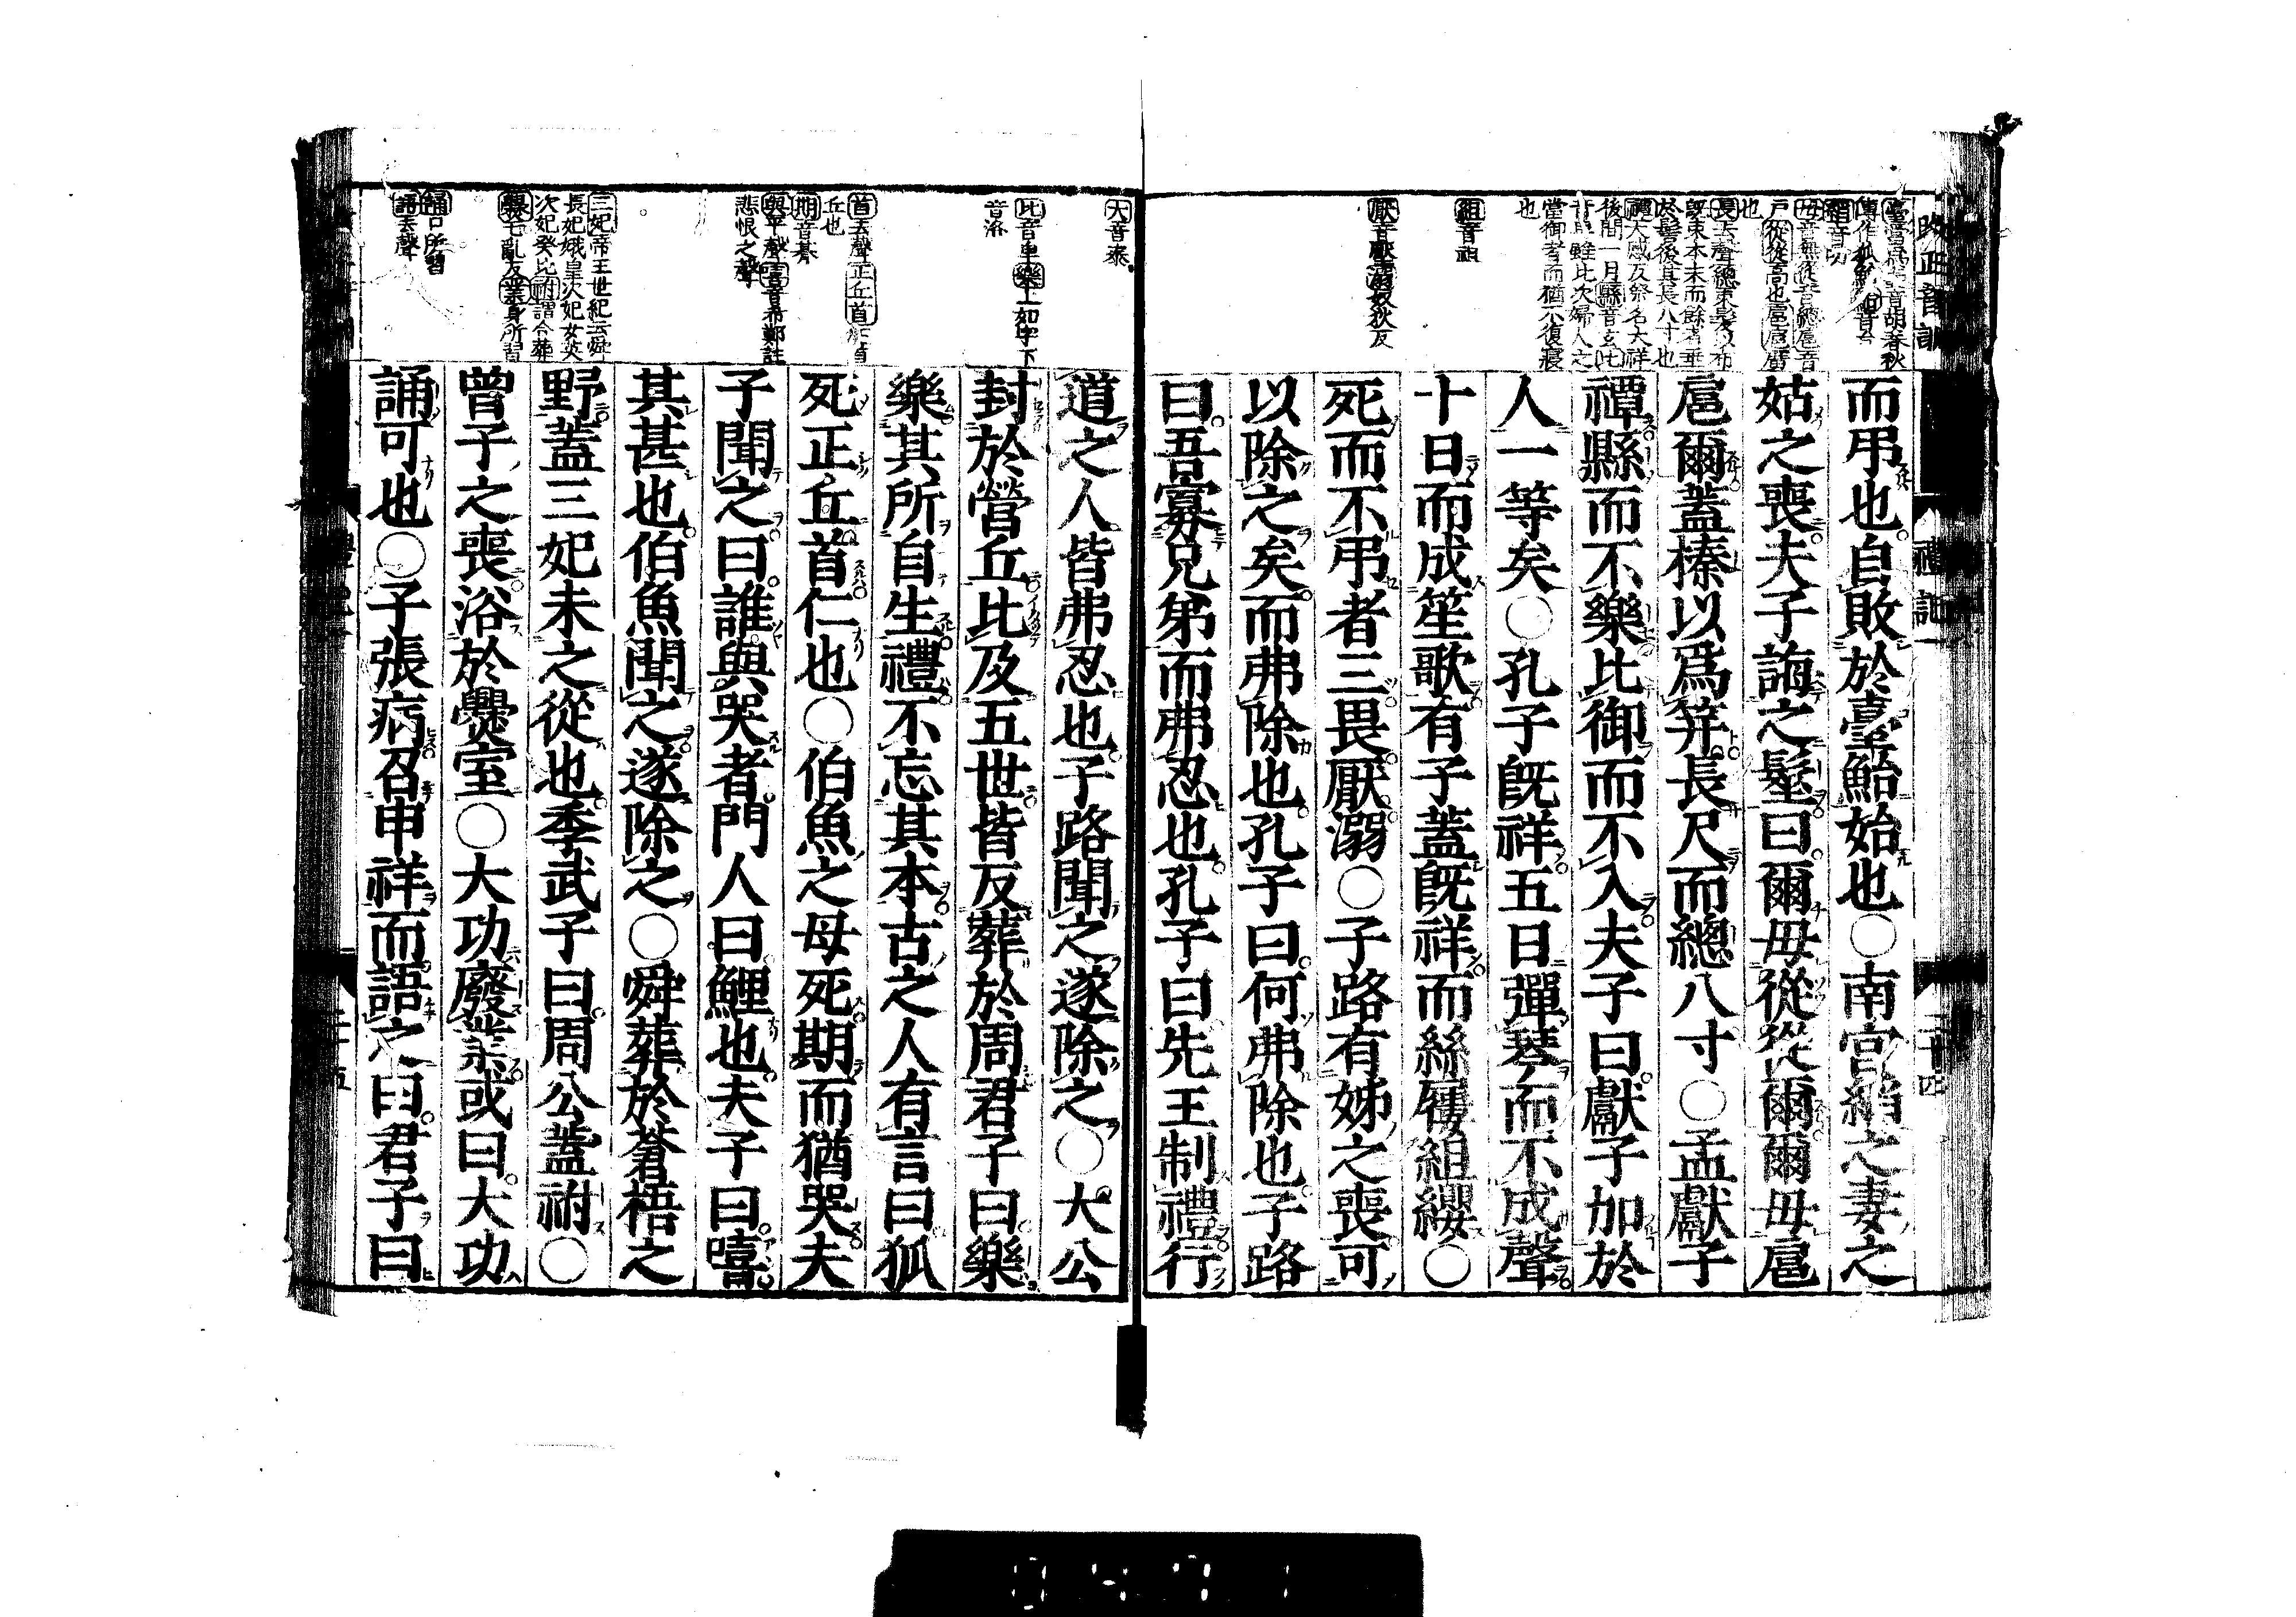 而弔也自敗於臺鮐始也○南宮縚之妻之
姑之喪夫子誨之髽曰爾毋從從爾爾毋扈
扈爾蓋榛以爲笄長尺而總八寸○孟獻子
禫縣而不樂比御而不入夫子曰獻子加於
人一等矣○孔子既祥五日彈琴而不成聲
十日而成笙歌有子蓋既祥而絲屨組纓○
死而不弔者三畏厭溺○子路有姊之喪可
以除之矣而弗除也孔子曰何弗除也子路
曰吾寡兄弟而弗忍也孔子曰先王制禮行
道之人皆弗忍也子路聞之遂除之○大公
封於營丘比及五世皆反葬於周君子曰樂
樂其所自生禮不忘其本古之人有言曰狐
死正丘首仁也○伯魚之母死期而猶哭夫
子聞之曰誰與哭者門人曰鯉也夫子曰嘻
其甚也伯魚聞之遂除之○舜葬於蒼梧之
野蓋三妃未之從也季武子曰周公蓋祔○
曾子之喪浴於爨室○大功廢業或曰大功
誦可也○子張病召申祥而語之曰君子曰
組音祖
厭音壓溺奴狄反
大音泰
比音卑樂上如字下
音洛
首去聲
丘也
期音朞
與平聲嘻音希鄭註
悲恨之聲
三妃帝王世紀云舜
長妃娥皇次妃女英
次妃癸比祔謂合葬
爨七亂反業身所習
誦口所習
語去聲
禮記一
二十四